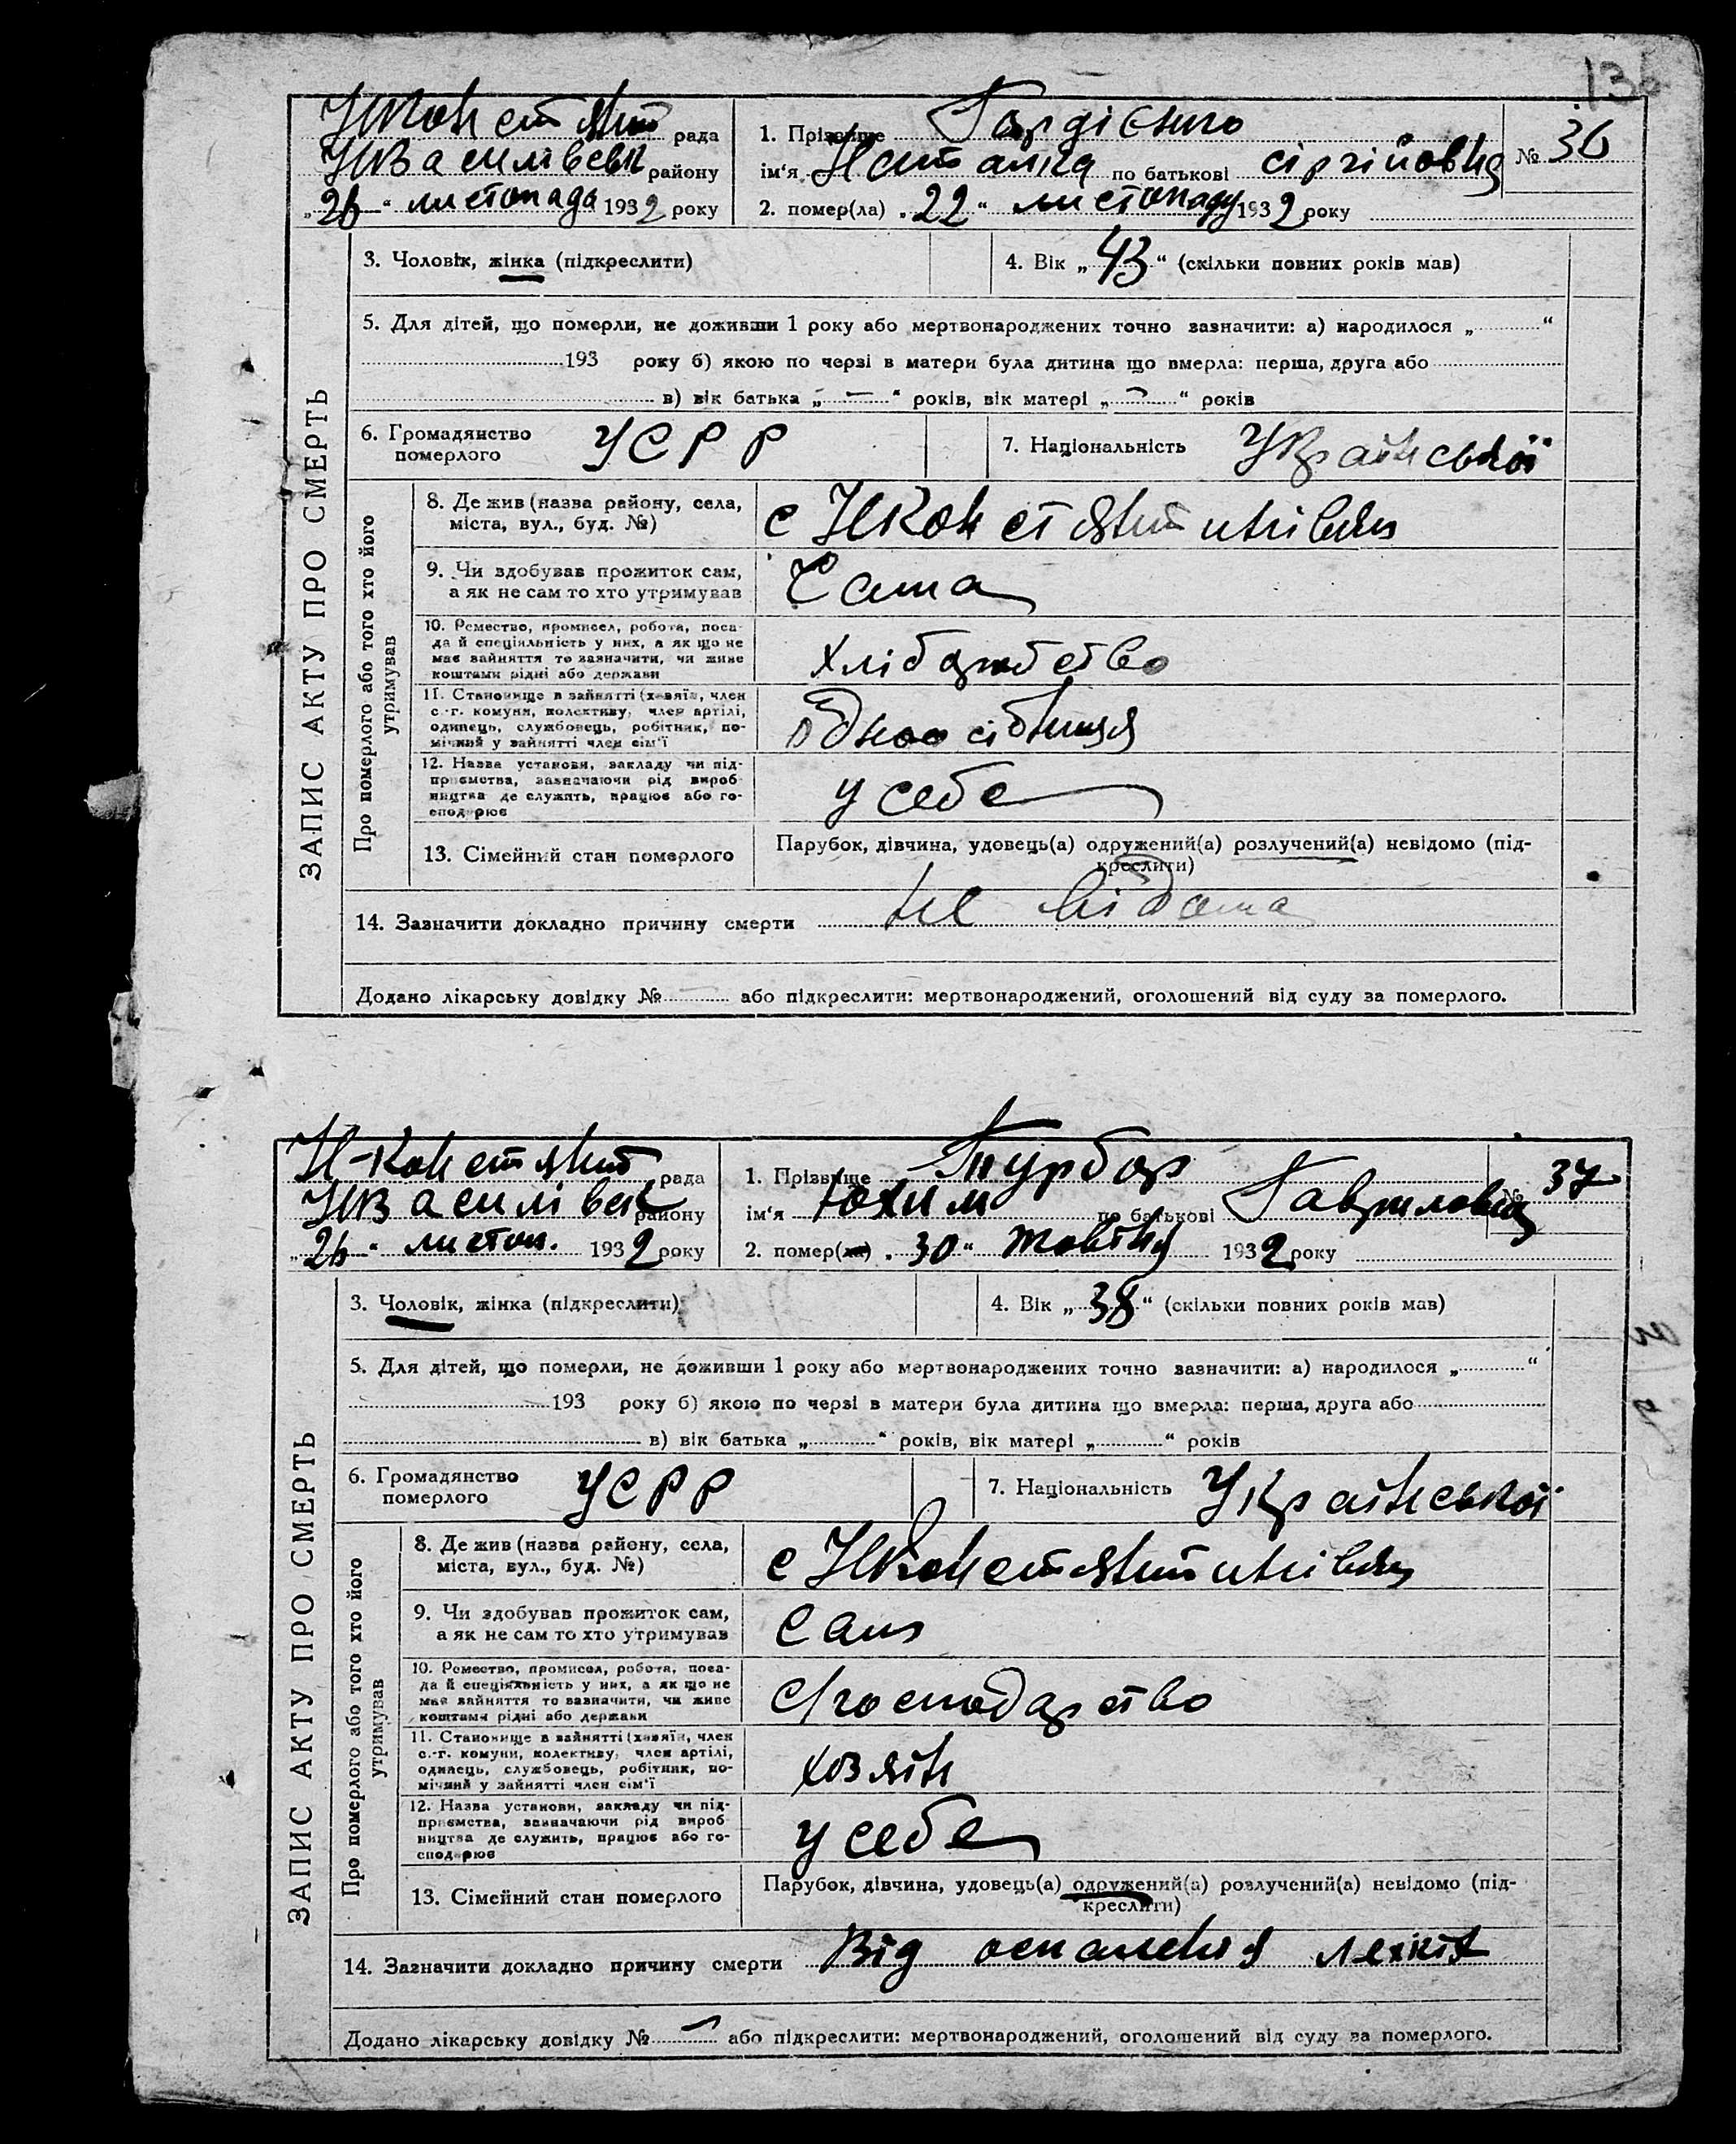 136
НКонстянт рада
НВасилівськ району
„26“ листопада 1932 року
1. Прізвище Гордієнко
ім‘я Наталка по батькові сіргійовна
№ 36
2. помер(ла) „22“ листопаду 1932 року
ЗАПИС АКТУ ПРО СМЕРТЬ
3. Чоловік, жінка (підкреслити)
4. Вік „43“ (скільки повних років мав)
5. Для дітей, що померли, не доживши 1 року або мертвонароджених точно зазначити: а) народилося „ “
193 року б) якою по черзі в матери була дитина що вмерла: перша, друга або
в) вік батька „—“ років, вік матері „—“ років
6. Громадянство померлого УСРР
7. Національність Українськоі
Про померлого або того хто його утримував
8. Де жив (назва району, села,
міста, вул., буд. №)
с НКонстянтинівки
9. Чи здобував прожиток сам,
а як не сам то хто утримував
Сама
10. Ремество, промисел, робота, поса-
да й спеціяльність у них, а як що не
має зайняття то зазначити, чи живе
коштами рідні або держави
хліборобство
11. Становище в зайнятті (хазяїн, член
с.-г. комуни, колективу, член артілі,
одинець, службовець, робітник, по-
мічний у зайнятті член сім‘ї
12. Назва установи, закладу чи під-
приємства, зазначаючи рід вироб-
ництва де служить, працює або го-
сподарює
у себе
13. Сімейний стан померлого
Парубок, дівчина, удовець(а) одружений(а) розлучений(а) невідомо (під-
креслити)
14. Зазначити докладно причину смерти не відома
Додано лікарську довідку № або підкреслити: мертвонароджений, оголошений від суду за померлого.
Н-Констянт рада
НВасилівськ району
„26“ листоп. 1932 року
1. Прізвище Турбар
ім‘я Юхим по батькові Гаврилович
№ 37
2. помер(ла) „30“ жовтня 1932 року
ЗАПИС АКТУ ПРО СМЕРТЬ
3. Чоловік, жінка (підкреслити)
4. Вік „38“ (скільки повних років мав)
5. Для дітей, що померли, не доживши 1 року або мертвонароджених точно зазначити: а) народилося „ “
193 року б) якою по черзі в матери була дитина що вмерла: перша, друга або
в) вік батька „ “ років, вік матері „ “ років
6. Громадянство померлого УСРР
7. Національність Українськоі
Про померлого або того хто його утримував
8. Де жив (назва району, села,
міста, вул., буд. №)
с НКонстянтинівки
9. Чи здобував прожиток сам,
а як не сам то хто утримував
Сам
10. Ремество, промисел, робота, поса-
да й спеціяльність у них, а як що не
має зайняття то зазначити, чи живе
коштами рідні або держави
С/господарство
11. Становище в зайнятті (хазяїн, член
с.-г. комуни, колективу, член артілі,
одинець, службовець, робітник, по-
мічний у зайнятті член сім‘ї
хозяїн
12. Назва установи, закладу чи під-
приємства, зазначаючи рід вироб-
ництва де служить, працює або го-
сподарює
у себе
13. Сімейний стан померлого
Парубок, дівчина, удовець(а) одружений(а) розлучений(а) невідомо (під-
креслити)
14. Зазначити докладно причину смерти Від оспалення легкіх
Додано лікарську довідку № — або підкреслити: мертвонароджений, оголошений від суду за померлого.